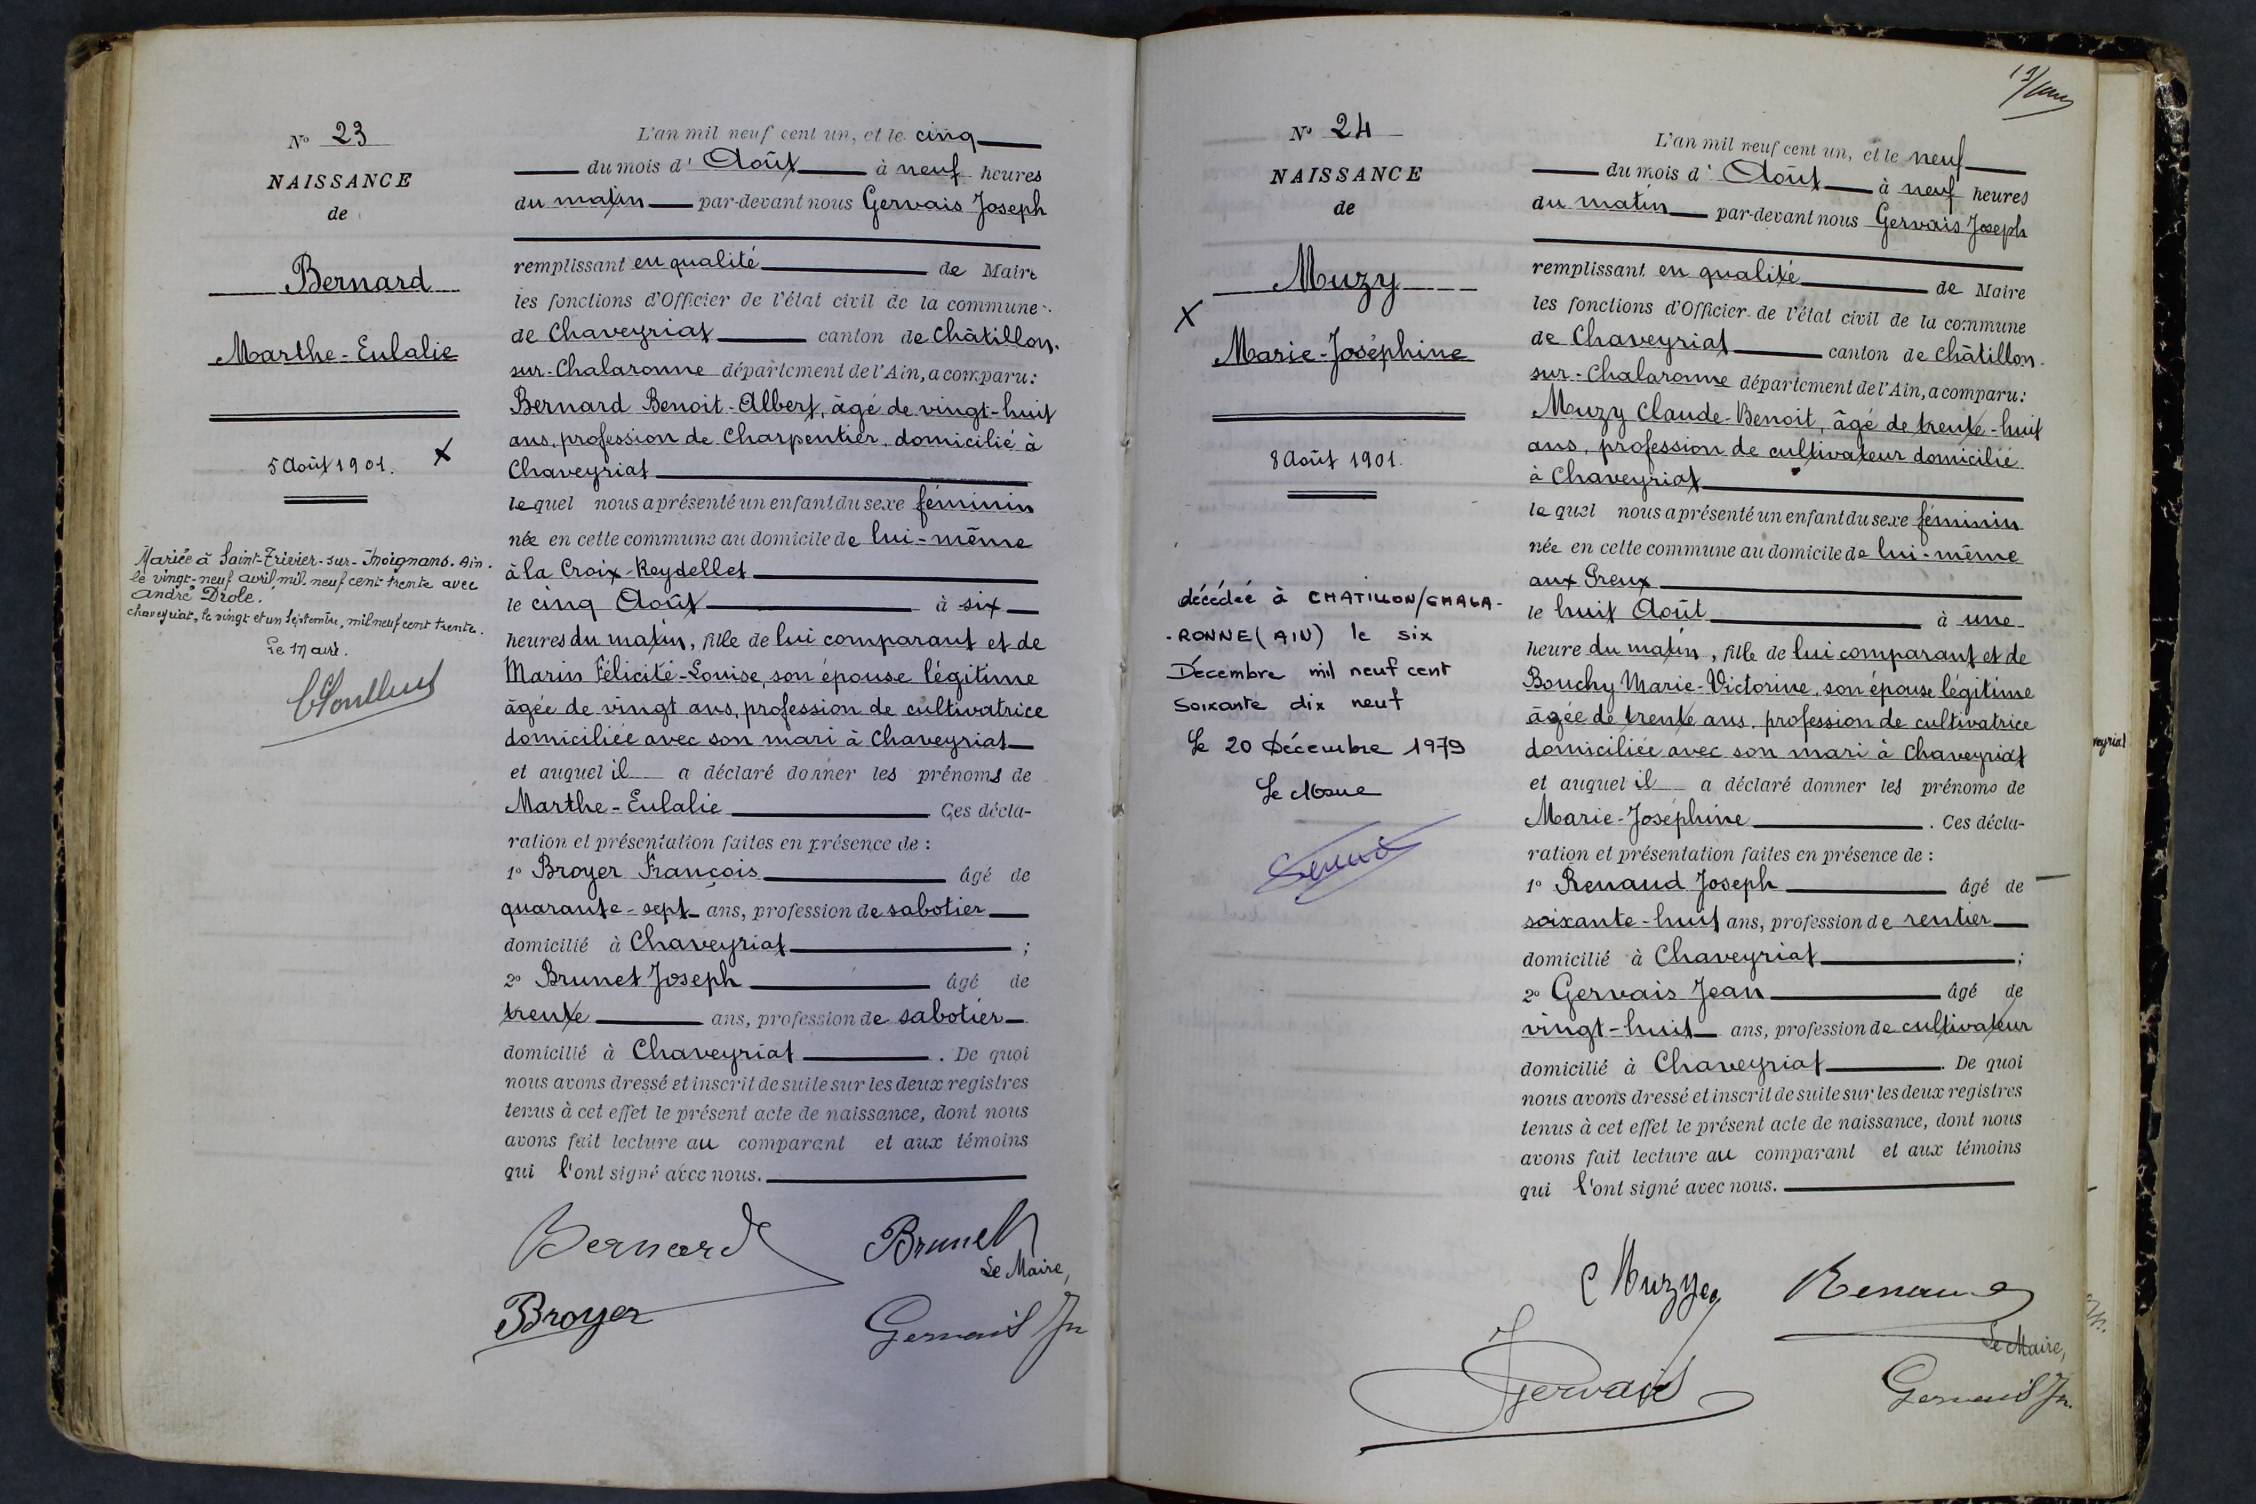 N° 23
NAISSANCE
de
Bernard
Marthe-Eulalie
5 Août 1901.
Mariée à Saint-Trivier-sur-Moignans. Ain.
le vingt-neuf avril mil neuf cent trente avec
André Drole.
Chaveyriat, le vingt et un Septembre, mil neuf cent trente.
Le Maire.
L'an mil neuf cent un, et le cinq
du mois d' Août à neuf heures
du matin par-devant nous Gervais Joseph
remplissant en qualité de Maire
les fonctions d'Officier de l'état civil de la commune
de Chaveyriat canton de Châtillon-
sur-Chalaronne département de l'Ain, a comparu:
Bernard Benoit-Albert, âgé de vingt-huit
ans, profession de Charpentier, domicilié à
Chaveyriat
lequel nous a présenté un enfant du sexe féminin
née en cette commune au domicile de lui-même
à la Croix-Reydellet
le cinq Août à six
heures du matin, fille de lui comparant et de
Marin Félicité-Louise, son épouse légitime
âgée de vingt ans, profession de cultivatrice
domiciliée avec son mari à Chaveyriat
et auquel il a déclaré donner les prénoms de
Marthe-Eulalie Ces décla-
ration et présentation faites en présence de :
1° Broyer François âgé de
quarante-sept ans, profession de sabotier
domicilié à Chaveyriat ;
2° Brunet Joseph âgé de
trente ans, profession de sabotier
domicilié à Chaveyriat . De quoi
nous avons dressé et inscrit de suite sur les deux registres
tenus à cet effet le présent acte de naissance, dont nous
avons fait lecture au comparant et aux témoins
qui l'ont signé avec nous.
Bernard Brunet
Le Maire,
Broyer Gervais Jh
N° 24
NAISSANCE
de
Muzy
Marie-Joséphine
8 Août 1901.
décédée à CHATILLON/CHALA-
-RONNE (AIN) le six
Décembre mil neuf cent
Soixante dix neuf
Le 20 Décembre 1979
Le Maire
L'an mil neuf cent un, et le neuf
du mois d' Août à neuf heures
du matin par-devant nous Gervais Joseph
remplissant en qualité de Maire
les fonctions d'Officier de l'état civil de la commune
de Chaveyriat canton de Châtillon-
sur-Chalaronne département de l'Ain, a comparu:
Muzy Claude-Benoit, âgé de trente-huit
ans, profession de cultivateur domicilié
à Chaveyriat
lequel nous a présenté un enfant du sexe féminin
née en cette commune au domicile de lui-même
aux Greux
le huit Août à une
heure du matin, fille de lui comparant et de
Bouchy Marie-Victorine, son épouse légitime
âgée de trente ans, profession de cultivatrice
domiciliée avec son mari à Chaveyriat
et auquel il a déclaré donner les prénoms de
Marie-Joséphine . Ces décla-
ration et présentation faites en présence de :
1° Renaud Joseph âgé de
soixante-huit ans, profession de rentier
domicilié à Chaveyriat ;
2° Gervais Jean âgé de
vingt-huit ans, profession de cultivateur
domicilié à Chaveyriat . De quoi
nous avons dressé et inscrit de suite sur les deux registres
tenus à cet effet le présent acte de naissance, dont nous
avons fait lecture au comparant et aux témoins
qui l'ont signé avec nous.
Renaud
Le Maire,
Gervais Gervais Jh
veyriat